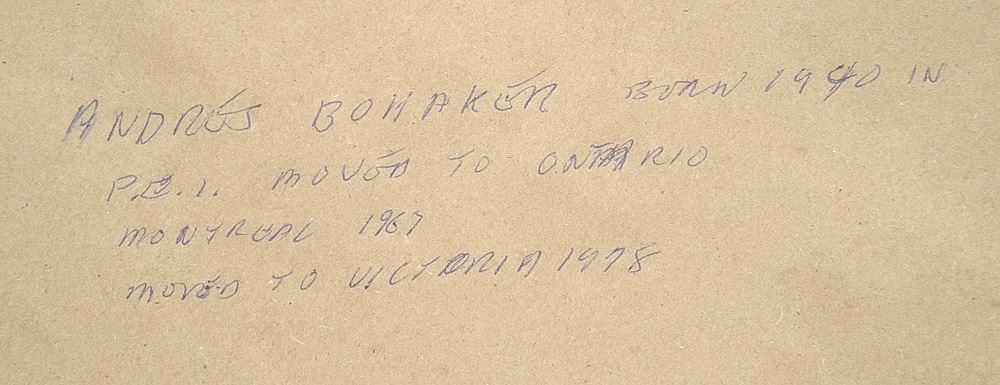 ANDRES BOHAKER BORN 1940 IN
P.E.I. MOVED TO ONTARIO
MONTREAL 1967
MOVED TO VICTORIA 1978